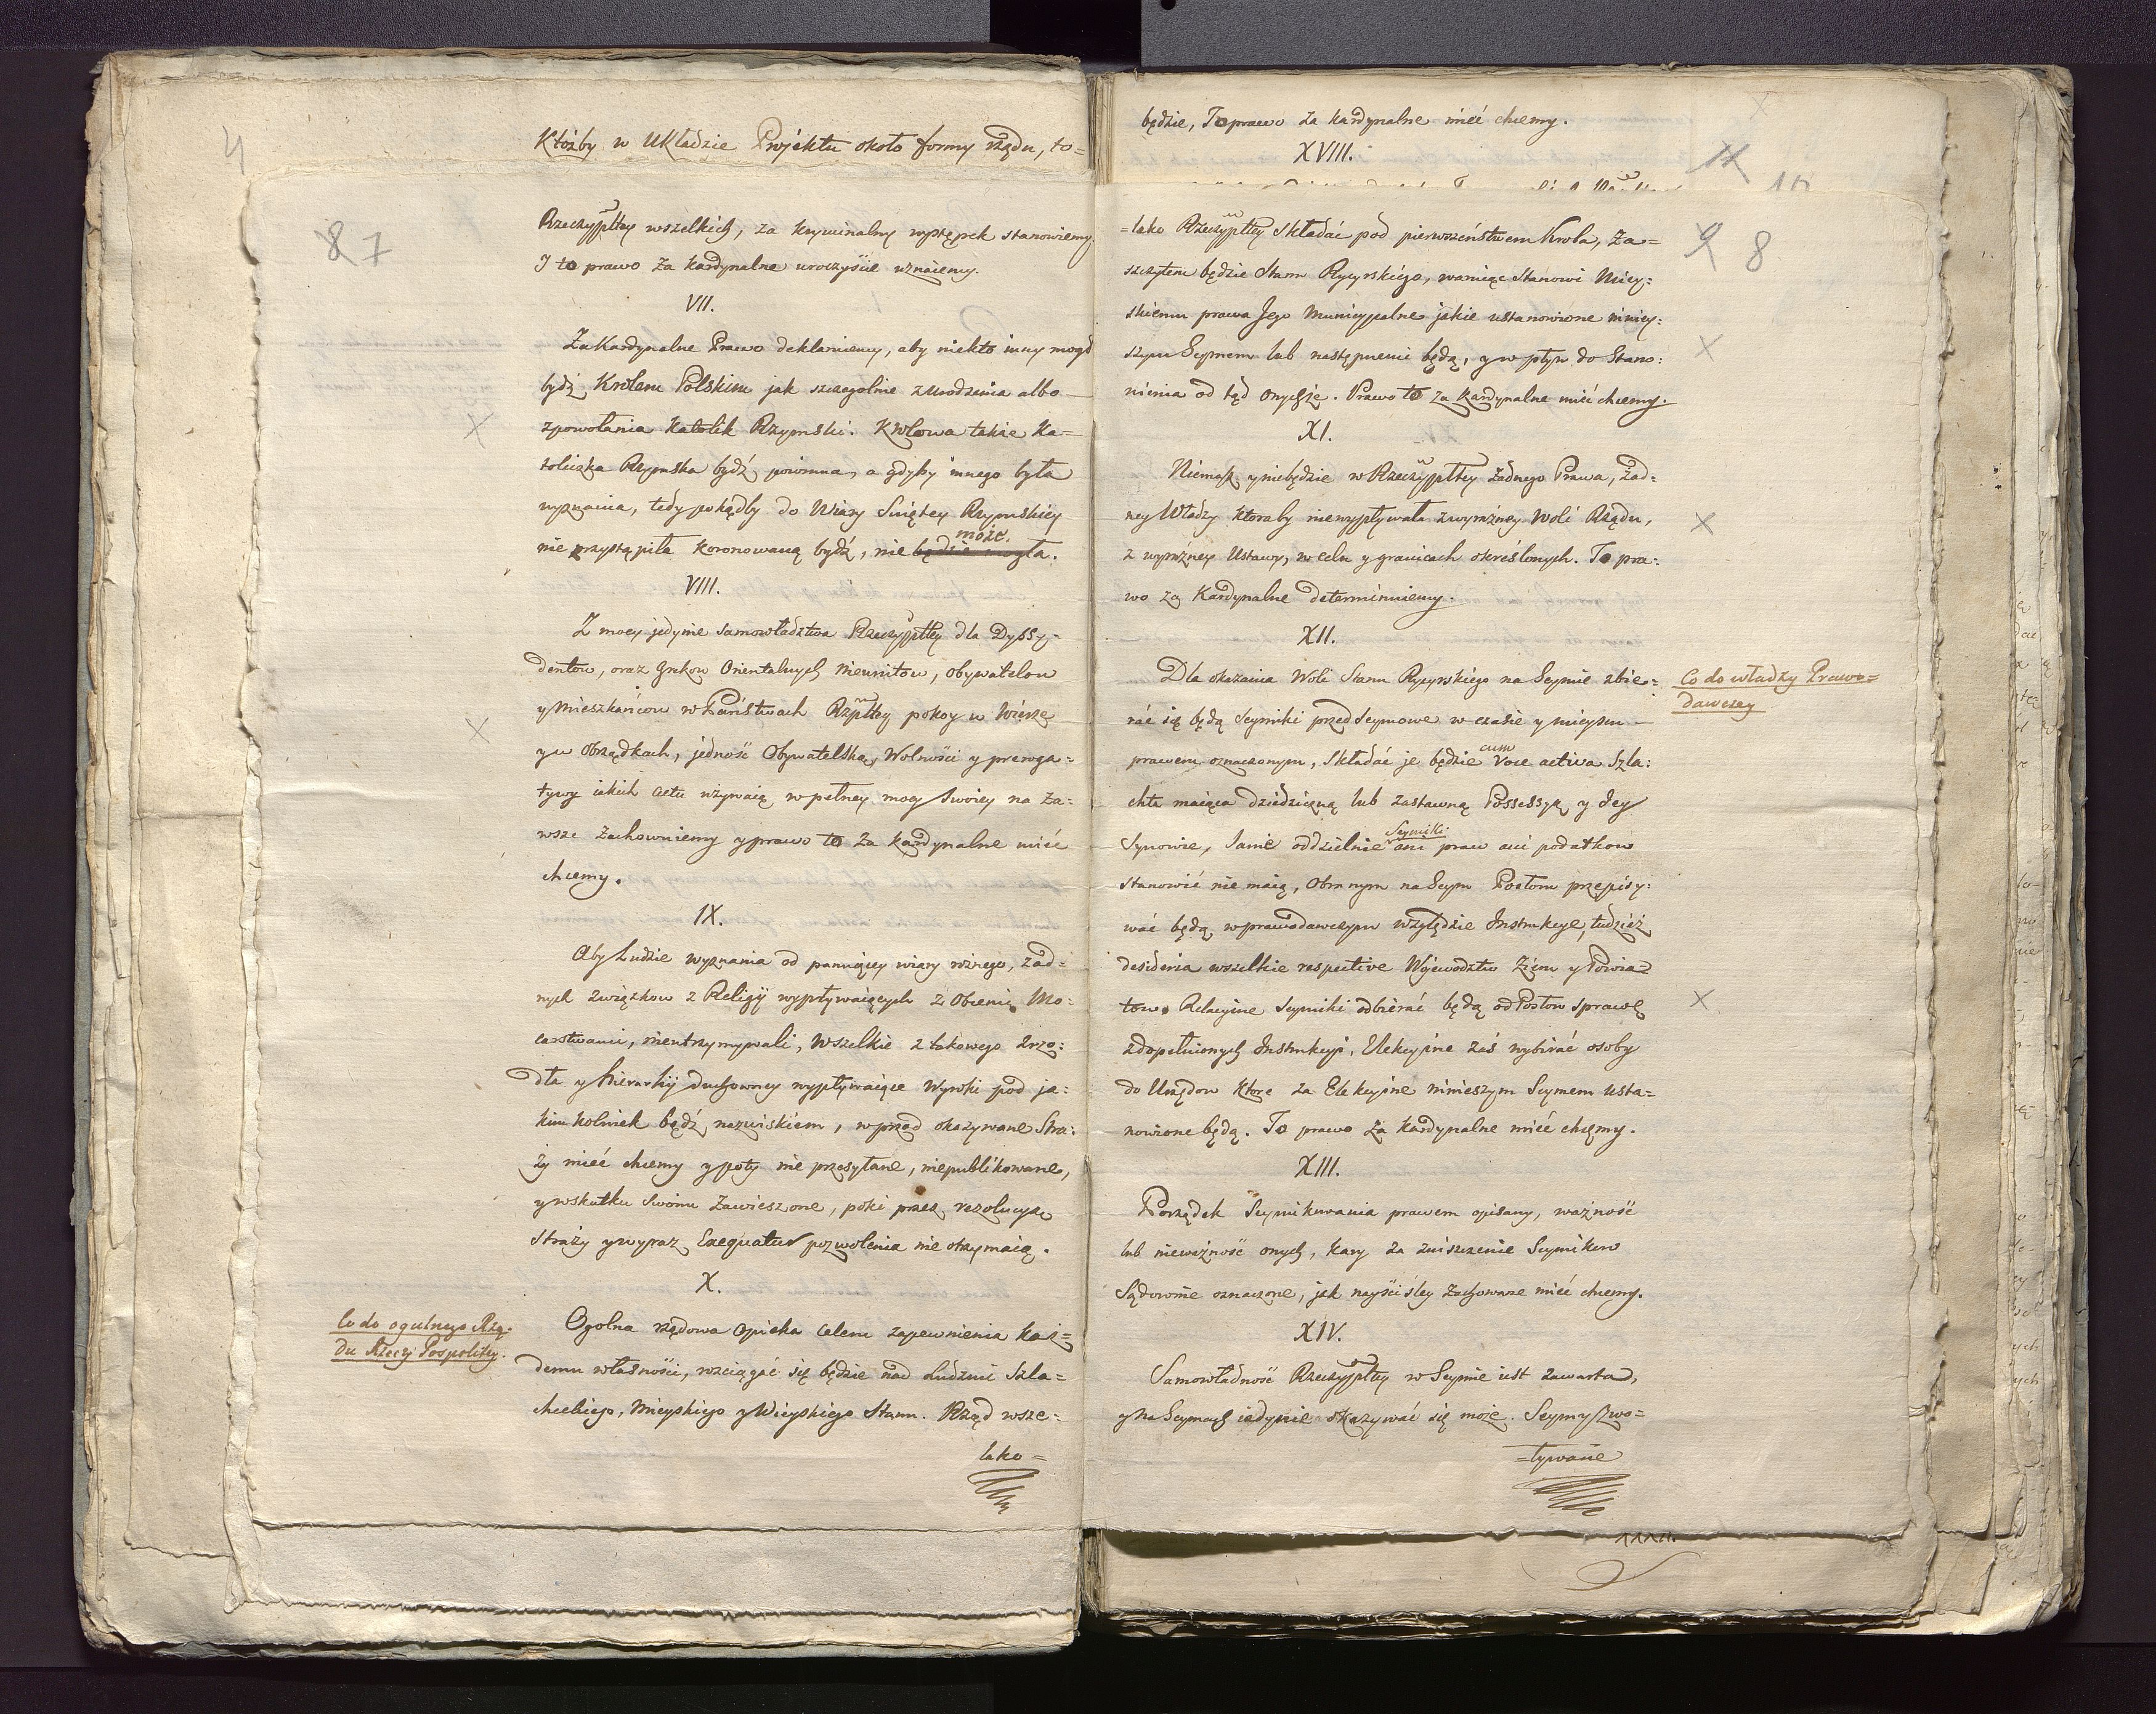 4
Któżby w Układzie Projektu około formy rządu, to=
87
Rzeczypptey wszelkich, za kryminalny występek stanowiemy.
I to prawo za kardynalne uroczyście uznaiemy.
VII.
Za Kardynalne Prawo deklaruiemy, aby niekto inny mogł
bydź Krolem Polskim jak szczegolnie z urodzenia albo
X
z powołania Katolik Rzymski. Krolowa także Ka=
toliczka Rzymska bydź powinna, a gdyby innego była
wyznania, tedy pokądby do Wiary Swiętey Rzymskiey
może.
nie przystąpiła koronowaną bydź, nie będzie mogła.
VIII.
Z mocy jedynie samowładztwa Rzeczypptey dla Dyssy=
dentow, oraz Grekow Orientalnych Nieunitow, obywatelow
y Mieszkańcow w Państwach Rzptey pokoy w Wierze
X
y w Obrządkach, jedność Obywatelską, Wolności y preroga=
tywy iakich aktu używaią w pełney mocy swoiey na za=
wsze zachowuiemy y prawo to za kardynalne mieć
chcemy.
IX.
Aby Ludzie wyznania od panuiącey wiary rożnego, żad=
nych związkow z Religij wypływaiących z Obcemi Mo=
carstwami, nieutrzymywali, wszelkie z takowego zrzo=
dła y hierarhij duchowney wypływaiące Wyroki pod ja=
kimkolwiek bądź nazwiskiem, wprzod okazywane Stra=
ży mieć chcemy y poty nie przesyłane, niepublikowane,
y w skutku swoim zawieszone, poki przez rezolucyą
Straży y wyraz Exequatur pozwolenia nie otrzymaią.
X.
Co do ogulnego Rzą=
du Rzeczy Pospolitey.
Ogolna rządowa Opieka celem zapewnienia każ=
demu własności, rozciągać się będzie nad Ludzmi Szla=
checkiego, Mieyskiego y Wieyskiego Stanu. Rząd wsze=
lako=
będzie, To prawo za kardynalne mieć chcemy.
XVIII.
11
10
9 8
=lako Rzeczypptey składać pod pierwszeństwem Krola, za=
szczytem będzie Stanu Rycyrskiego, waruiąc Stanowi Miey=
skiemu prawa Jego Municypalne jakie ustanowione niniey=
X
szym Seymem lub następnemi będą, y wpływ do Stano=
nienia od tąd onychże. Prawo to za kardynalne mieć chcemy.
XI.
Niemasz y niebędzie w Rzeczypptey żadnego Prawa, żad=
ney Władzy ktoraby niewypływała z wyraźney Woli Rządu,
X
z wyraźney Ustawy, w celu y granicach określonych. To pra=
wo za Kardynalne determinuiemy.
XII.
Co do władzy Prawo=
dawczey
Dla okazania Woli Stanu Rycyrskiego na Seymie zbie=
rać się będą Seymiki przed Seymowe w czasie y mieyscu
cum
prawem oznaczonym, składać je będzie Voce activa Szla=
chta maiąca dziedziczną lub zastawną Possessyą y Jey
Seymiki
Synowie, same oddzielnie ani praw ani podatkow
stanowić nie maią, Obranym na Seym Posłom przepisy=
wać będą w prawodawczym względzie Instrukcye, tudzież
desideria wszelkie respective Wojewodztw Ziem y Powia=
X
tow. Relacyine Seymiki odbierać będą od Posłow sprawę
z dopełnionych Instrukcyi, Elekcyine zaś wybirać osoby
do Urzędow ktore za Elekcyine ninieszym Seymem usta=
nowione będą. To prawo za kardynalne mieć chcemy.
XIII.
Porządek Seymikowania prawem opisany, ważność
lub nieważność onych, kary za zniszczenie Seymikow
Sądownie oznaczone, jak nayściśley zachowane mieć chcemy.
XIV.
Samowładność Rzeczypptey w Seymie iest zawarta,
y na Seymach iedynie okazywać się może. Seymy zwo=
=ływane